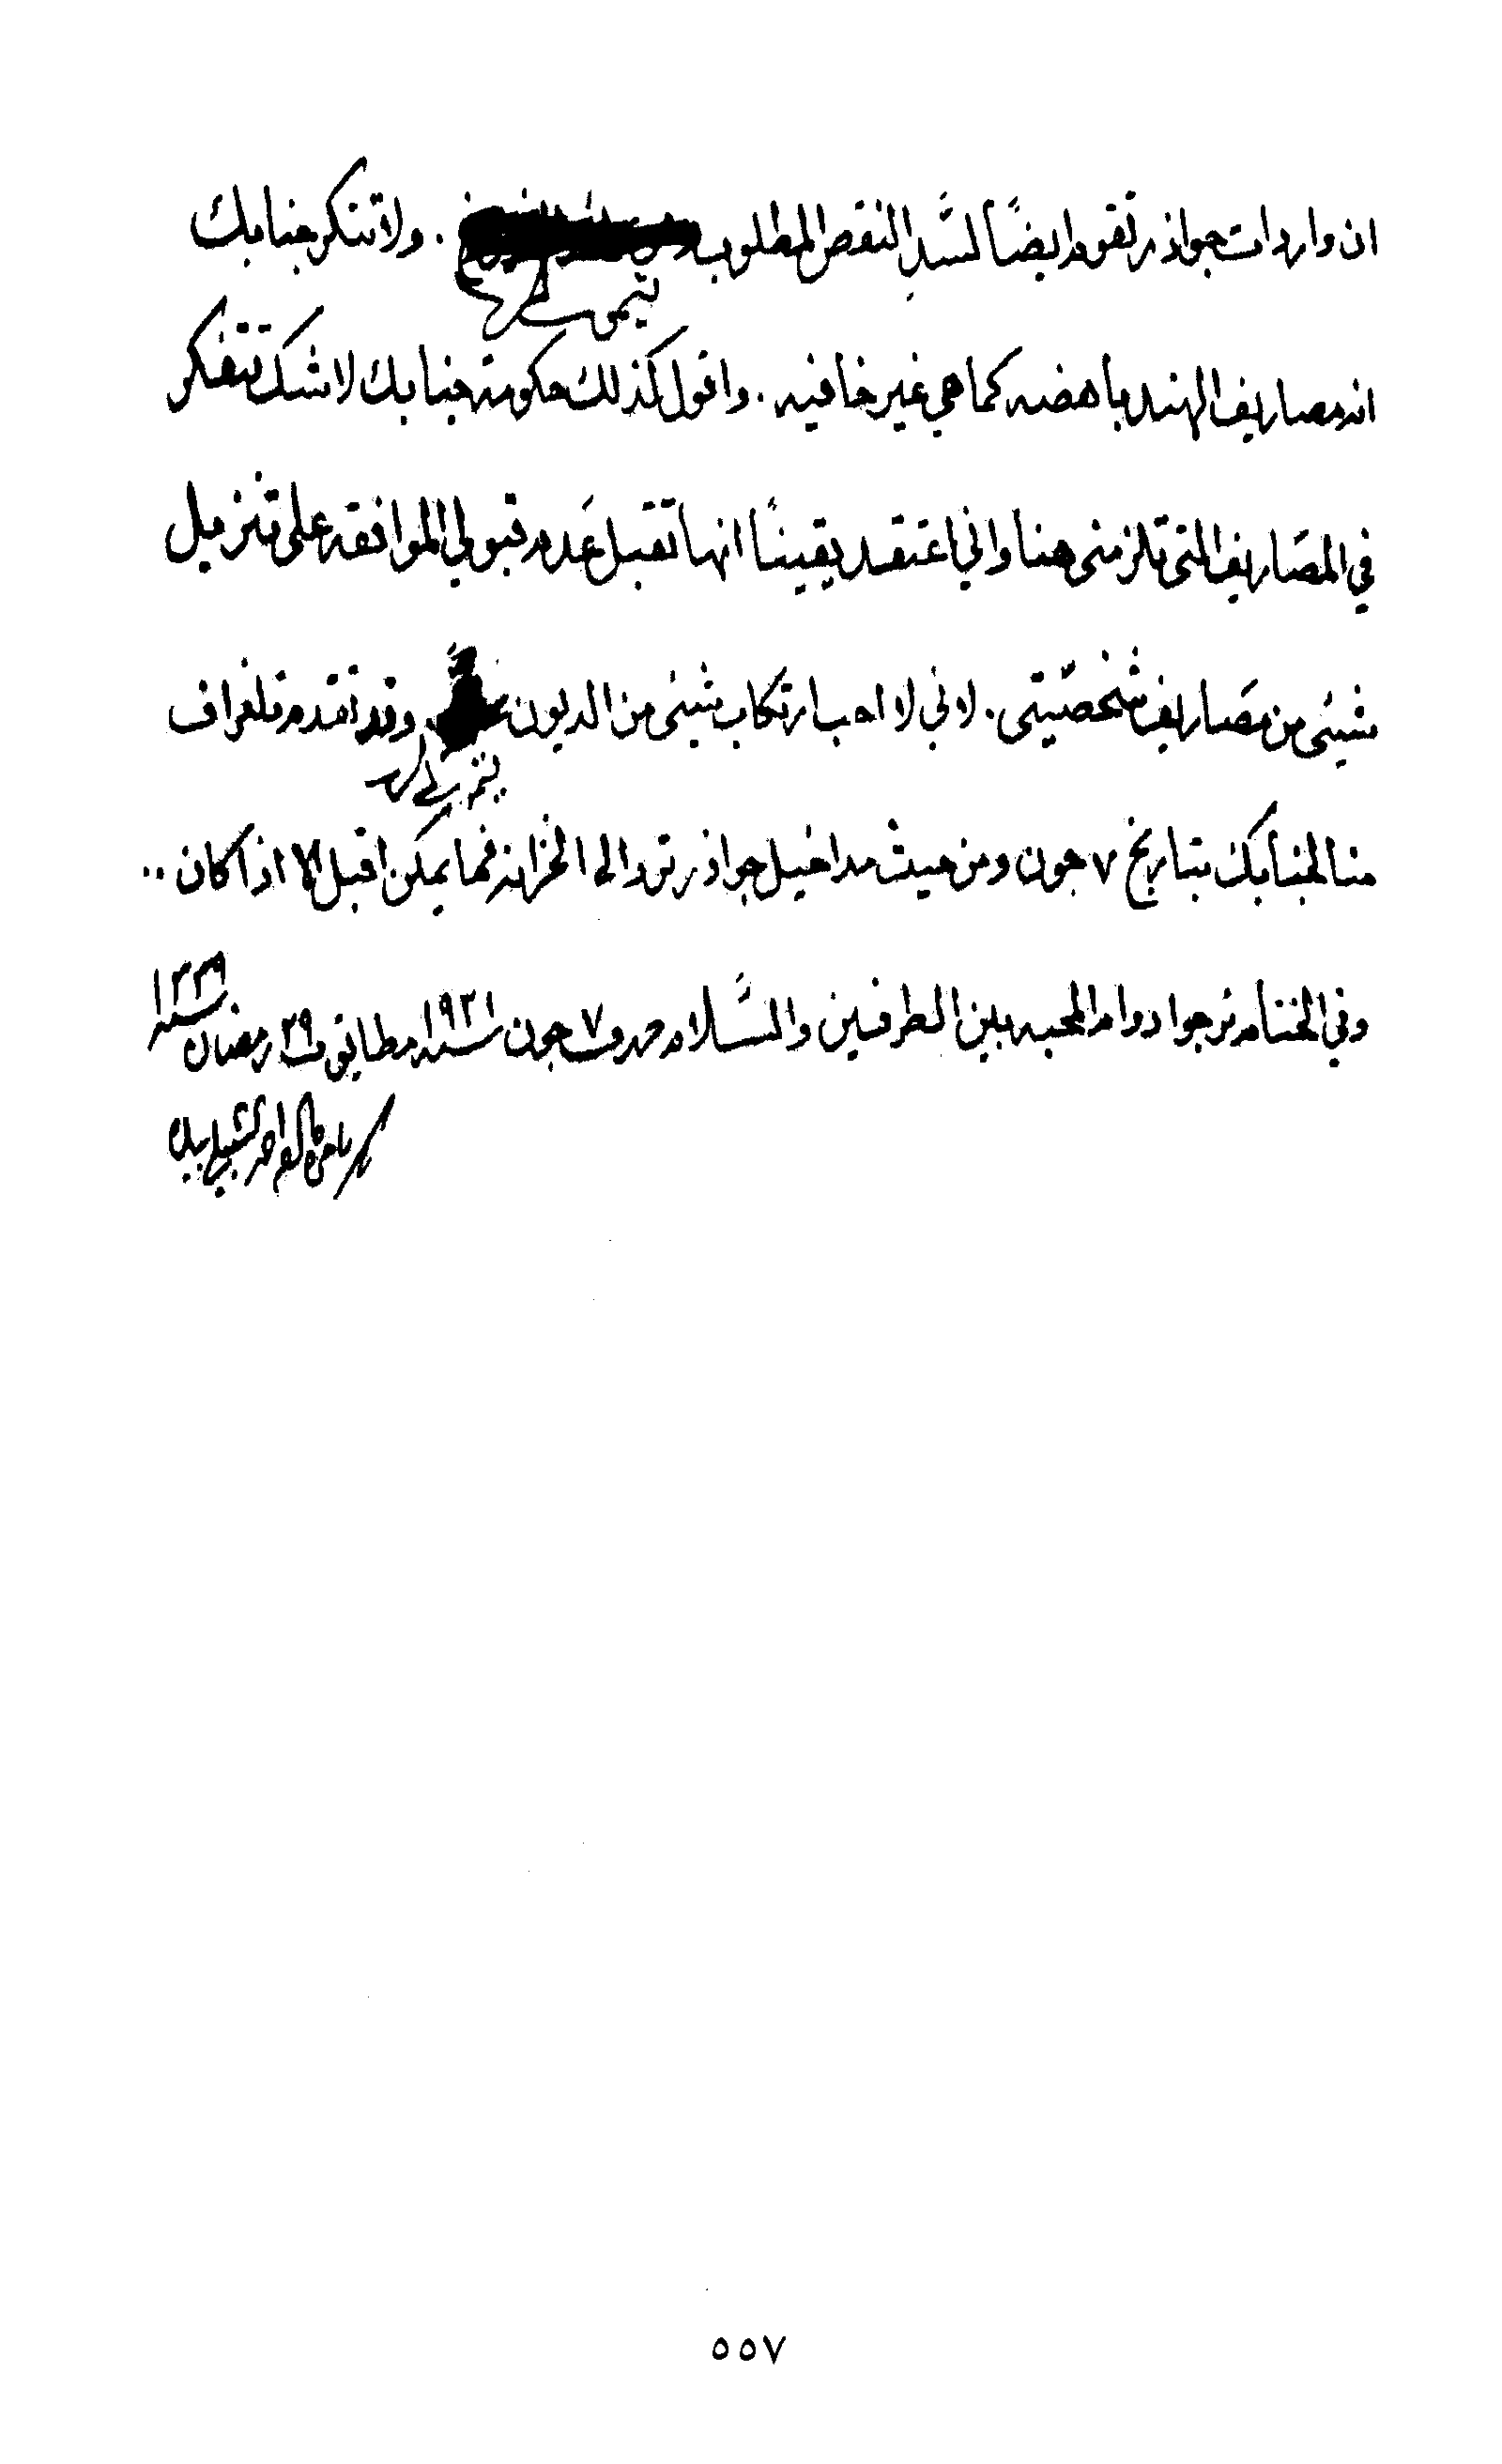 ان واردات جواذر تقوم ايضاً لسَّدِ النقص المطلوب . ولا تنكر جنابك
انه مصاريف الهند باهضه كما هي غير خافيه . واقول كذلك حكومة جنابك لا شك تتفكر
في المصَاريف التي تلزمني هنا واني اعتقد يقيناً انها تقبل عَدم قبولي الموافقه على تنزيل
شيئى من مصَاريف شخصيّتي . لاني لا احب ارتكاب شيئى من الديون وقد تقدم تلغراف
منا لجنابك بتاريخ ٧ جون ومن حيث مداخيل جواذر ترد الى الخزانه فما يمكن اقبل الا اذا كان ..
وفي الختام نرجوا دوام المحبه بين الطرفين والسَّلام ٧ جون سنه ١٩٢١ مطابق ٢٩ رمضان سنه ١٣٣٩
٥٥٧